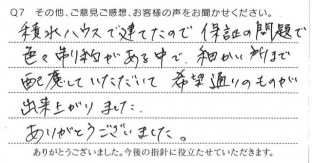 Q7 その他、ご意見ご感想、お客様の声をお聞かせください。
積水ハウスで建てたので 保証の問題で
色々制約がある中で、細かい所まで
配慮していただいて 希望通りのものが
出来上がりました。
ありがとうございました。
ありがとうございました。今後の指針に役立たせていただきます。